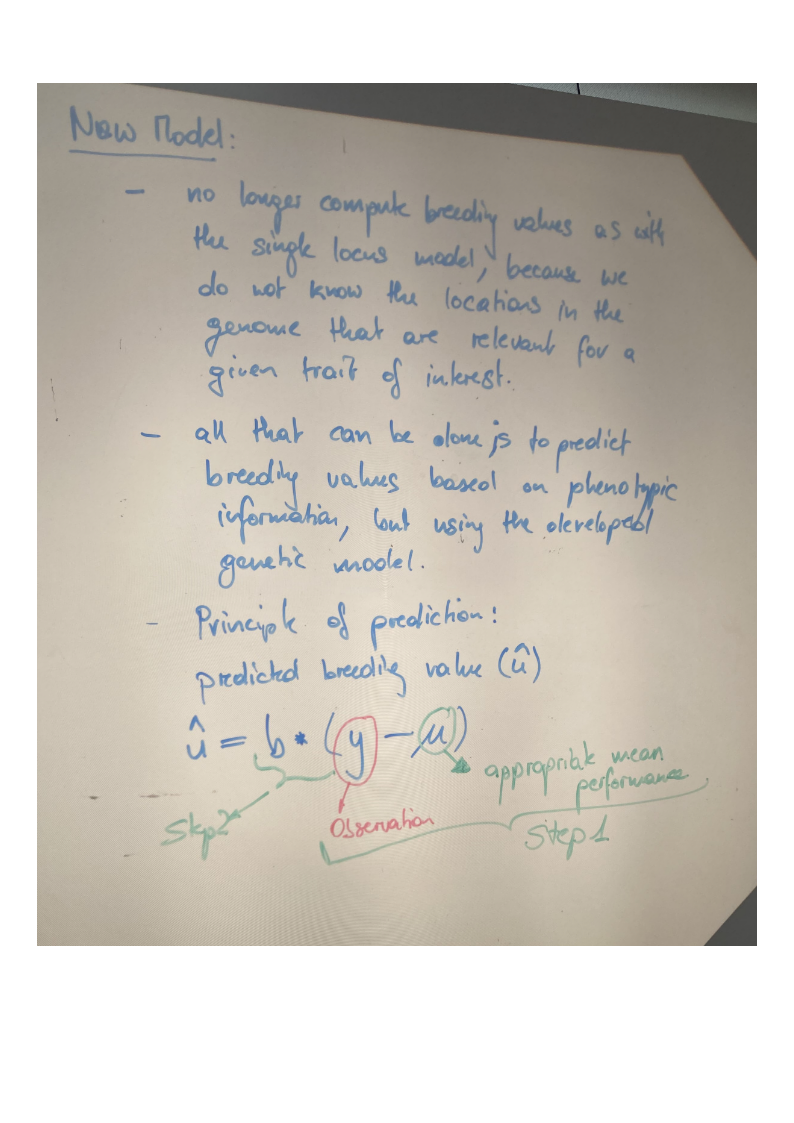 New Model:
- no longer compute breeding values as with
the single locus model, because we
do not know the locations in the
genome that are relevant for a
given trait of interest.
- all that can be done is to predict
breeding values based on phenotypic
information, but using the developed
genetic model.
- Principle of prediction:
predicted breeding value (û)
û = b * (y - μ)
appropriate mean
performance
Step 2
Observation
Step 1